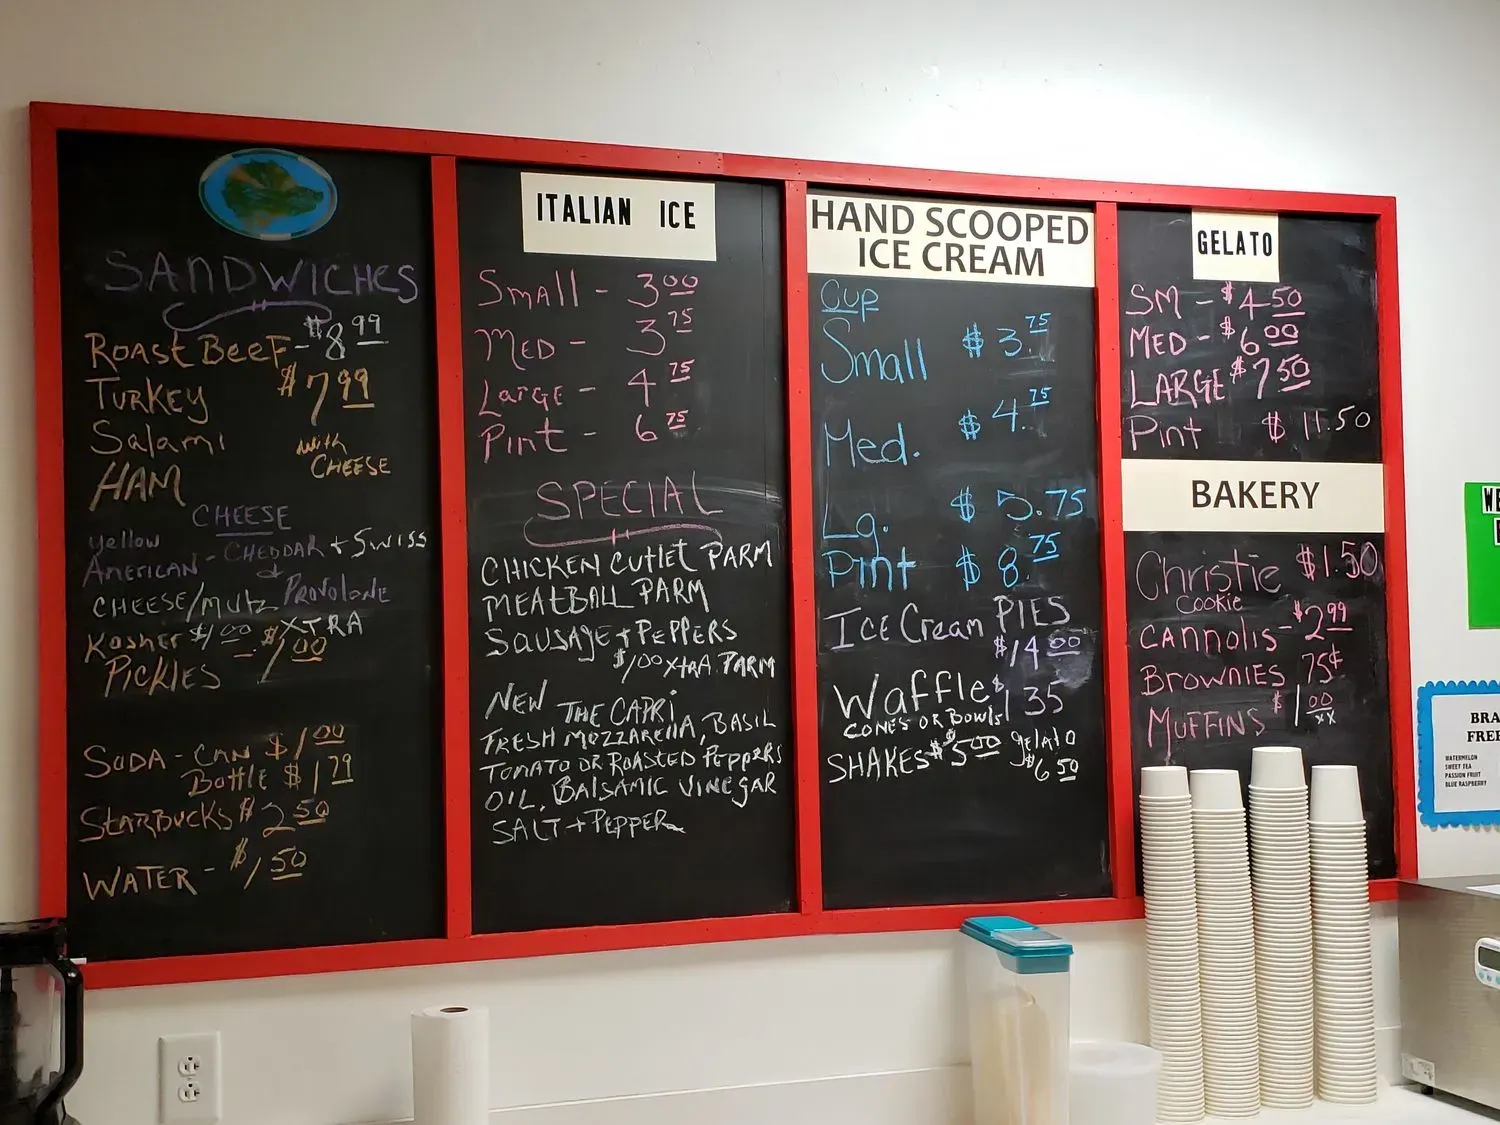 SANDWICHES
ROAST BEEF - $8.99
TURKEY $7.99
Salami with
HAM CHEESE
CHEESE
yellow
AMERICAN - CHEDDAR + SWISS
CHEESE/MUTZ PROVOLONE
Kosher $1.00 - $1.00 XTRA
PICKLES
SODA - CAN $1.00
Bottle $1.79
STARBUCKS $2.50
WATER - $1.50
ITALIAN ICE
Small - 3.00
MED - 3.75
LargE - 4.75
Pint - 6.75
SPECIAL
CHICKEN CUTLET PARM
MEATBALL PARM
SAUSAGE + PEPPERS
$1.00 XTRA PARM
NEW THE CAPRi
FRESH MOZZARELLA, BASIL
TOMATO OR ROASTED PEPPERS
OIL, BALSAMIC VINEGAR
SALT + PEPPER
HAND SCOOPED
ICE CREAM
Cup
Small $3.75
Med. $4.75
Lg. $5.75
Pint $8.75
ICE Cream PIES
$14.00
Waffle $1.35
CONES OR BOWLS
SHAKES $5.00 gelato
$6.50
GELATO
SM - $4.50
MED - $6.00
LARGE $7.50
Pint $11.50
BAKERY
Christie $1.50
COOKIE
CANNOLIS - $2.99
BROWNIES 75¢
MUFFINS $1.00
xx
BRA
FREE
WATERMELON
SWEET TEA
PASSION FRUIT
BLUE RASPBERRY